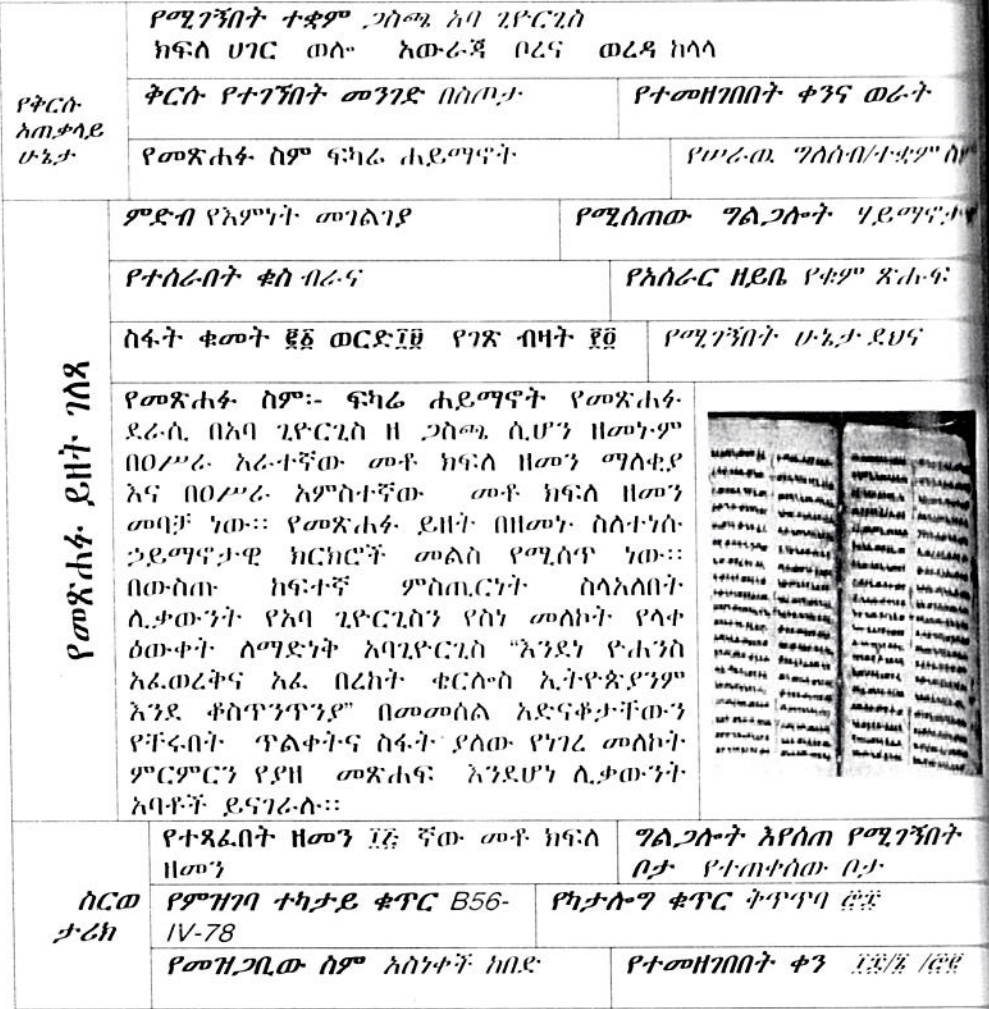 የሚገኝበት ተቋም ጋስጫ አባ ጊዮርጊስ
ክፍለ ሀገር ወሎ አውራጃ ቦረና ወረዳ ከላላ
የቅርሱ
አጠቃላይ
ሁኔታ
ቅርሱ የተገኘበት መንገድ በስጦታ
የተመዘገበበት ቀንና ወራት
የመጽሐፉ ስም ፍካሬ ሐይማኖት
የሠራዉ ግለሰብ/ተቋም ስም
የመጽሐፉ ይዘት ገለጻ
ምድብ የእምነት መገልገያ
የሚሰጠው ግልጋሎት ሃይማኖታዊ
የተሰራበት ቁስ ብራና
የአሰራር ዘይቤ የቁም ጽሑፍ
ስፋት ቁመት ፪፩ ወርድ፲፱ የገጽ ብዛት ፻፬
የሚገኝበት ሁኔታ ደህና
የመጽሐፉ ስም፡- ፍካሬ ሐይማኖት የመጽሐፉ
ደራሲ በአባ ጊዮርጊስ ዘ ጋስጫ ሲሆን ዘመኑም
በዐሥራ አራተኛው መቶ ክፍለ ዘመን ማለቂያ
እና በዐሥራ አምስተኛው መቶ ክፍለ ዘመን
መባቻ ነው። የመጽሐፉ ይዘት በዘመኑ ስለተነሱ
ኃይማኖታዊ ክርክሮች መልስ የሚሰጥ ነው።
በውስጡ ከፍተኛ ምስጢርነት ስላአለበት
ሊቃውንት የአባ ጊዮርጊስን የስነ መለኮት የላቀ
ዕውቀት ለማድነቅ አባጊዮርጊስ “እንደነ ዮሐንስ
አፈወረቅና አፈ በረከት ቄርሎስ ኢትዮጵያንም
እንደ ቆስጥንጥንያ” በመመሰል አድናቆታቸውን
የቸሩበት ጥልቀትና ስፋት ያለው የነገረ መለኮት
ምርምርን የያዘ መጽሐፍ እንደሆነ ሊቃውንት
አባቶች ይናገራሉ።
ስርወ
ታሪክ
የተጻፈበት ዘመን ፲፭ ኛው መቶ ክፍለ
ዘመን
ግልጋሎት እየሰጠ የሚገኝበት
ቦታ የተጠቀሰው ቦታ
የምዝገባ ተካታይ ቁጥር B56-
IV-78
የካታሎግ ቁጥር ቅጥጥባ
የመዝጋቢው ስም አስነቀች ከበደ
የተመዘገበበት ቀን